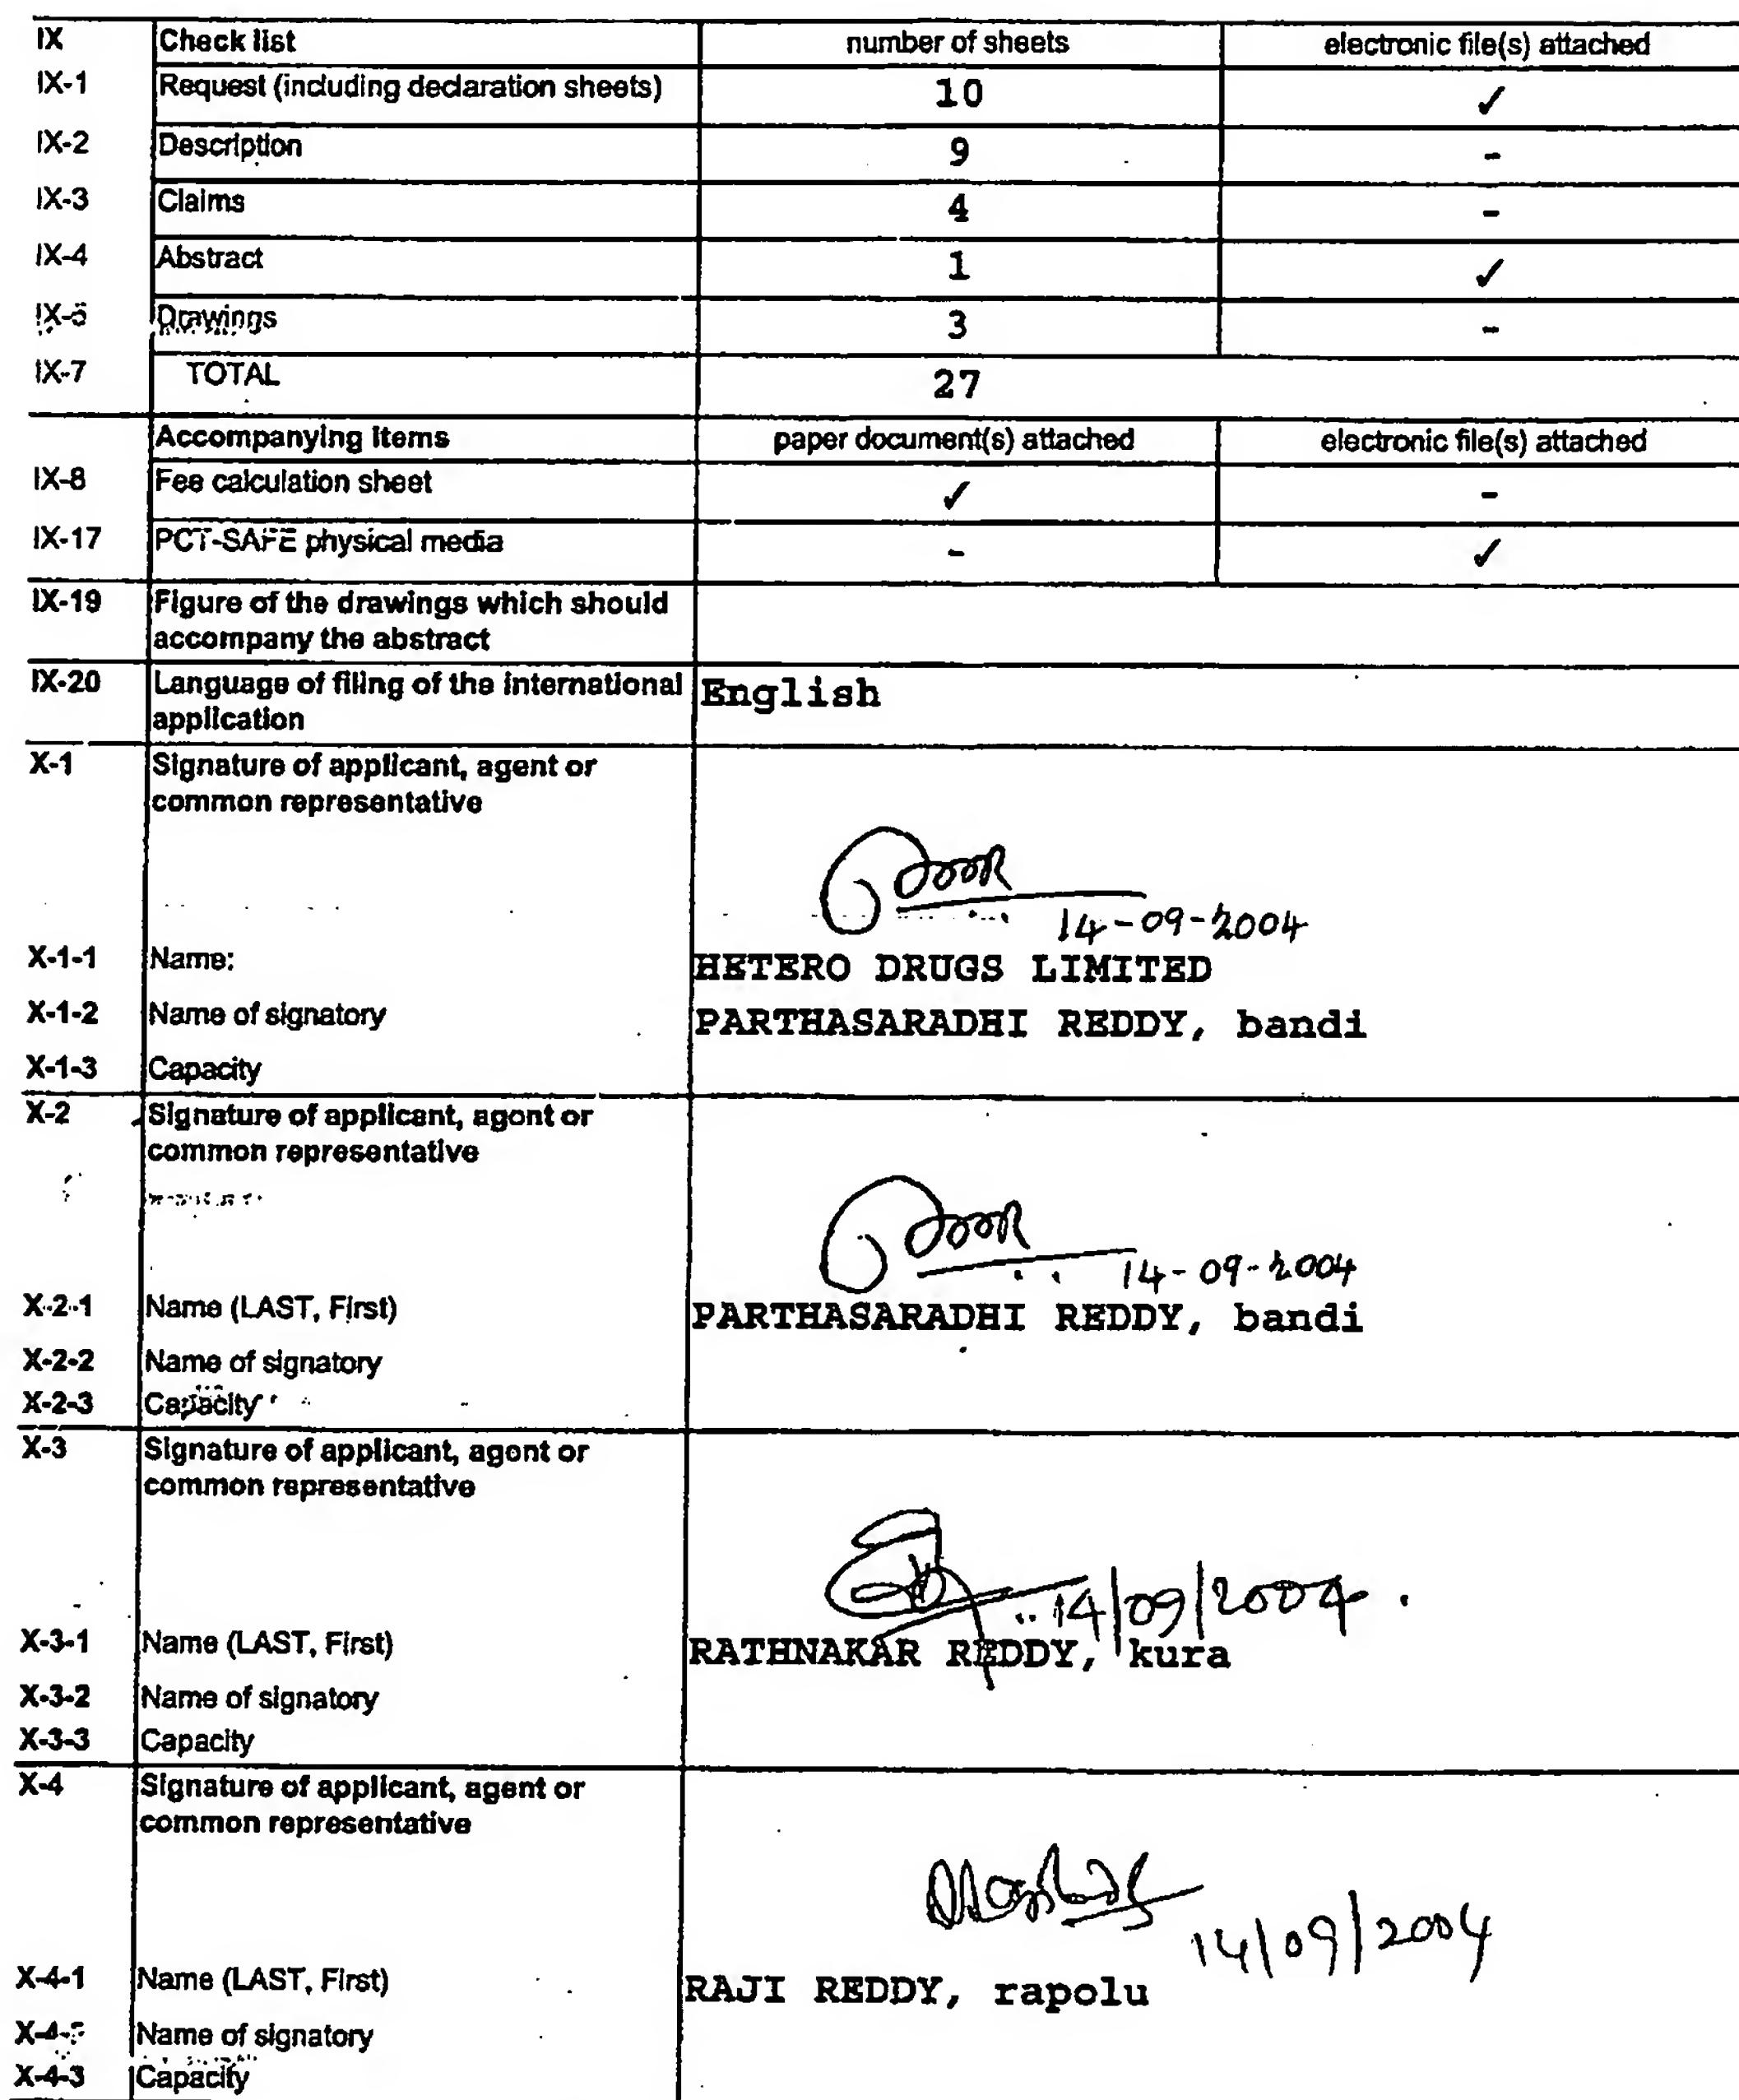 IX Check list number of sheets electronic file(s) attached
IX-1 Request (including declaration sheets) 10 ✓
IX-2 Description 9 -
IX-3 Claims 4 -
IX-4 Abstract 1 ✓
Drawings 3 -
IX-7 TOTAL 27
Accompanying Items paper document(s) attached electronic file(s) attached
IX-8 Fee calculation sheet ✓ -
IX-17 PCT-SAFE physical media - ✓
IX-19 Figure of the drawings which should
accompany the abstract
IX-20 Language of filing of the international English
application
X-1 Signature of applicant, agent or
common representative
14-09-2004
X-1-1 Name: HETERO DRUGS LIMITED
X-1-2 Name of signatory PARTHASARADHI REDDY, bandi
X-1-3 Capacity
X-2 Signature of applicant, agent or
common representative
14-09-2004
X-2-1 Name (LAST, First) PARTHASARADHI REDDY, bandi
X-2-2 Name of signatory
X-2-3 Capacity
X-3 Signature of applicant, agent or
common representative
14/09/2004.
X-3-1 Name (LAST, First) RATHNAKAR REDDY, kura
X-3-2 Name of signatory
X-3-3 Capacity
X-4 Signature of applicant, agent or
common representative
14/09/2004
X-4-1 Name (LAST, First) RAJI REDDY, rapolu
Name of signatory
X-4-3 Capacity